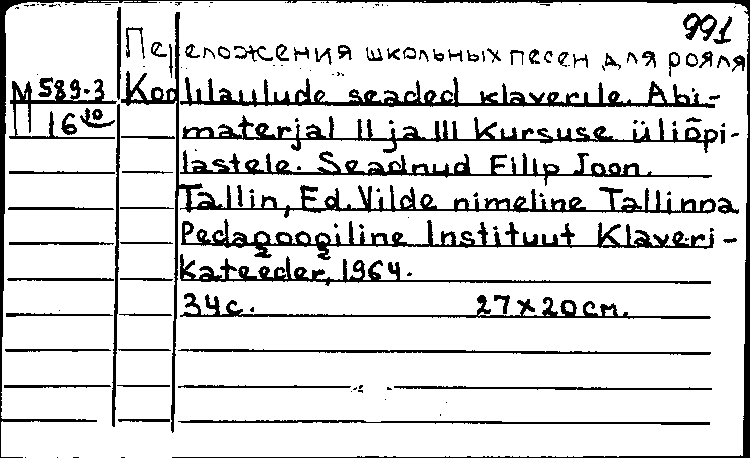 991
Переложения школьных песен для рояля
М 589-3 Koolilaulude seaded klaverile. Abi-
16 10 materjal II ja III Kursuse üliõpi-
lastele. Seadnud Filip Joon.
Tallin, Ed. Vilde nimeline Tallinna
Pedagoogiline Instituut Klaveri-
kateeder, 1964.
34 с. 27x20 см.